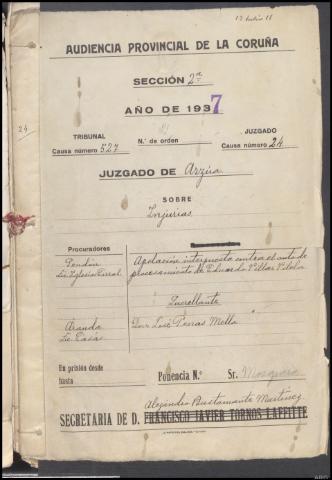 AUDIENCIA PROVINCIAL DE LA CORUÑA
SECCIÓN 2ª
AÑO DE 1937
TRIBUNAL
Causa número 527
N.º de orden
JUZGADO
Causa número 24
24
JUZGADO DE Arzúa
SOBRE
Injurias
Procuradores
Apelación interpuesta contra el auto de
procesamiento de Eduardo Villar
Querellante
Don José Porras Mella
En prisión desde
hasta
Ponencia N.º Sr. Mosquera
Alejandro Bustamante Martínez
SECRETARIA DE D. FRANCISCO JAVIER TORNOS LAFFITTE